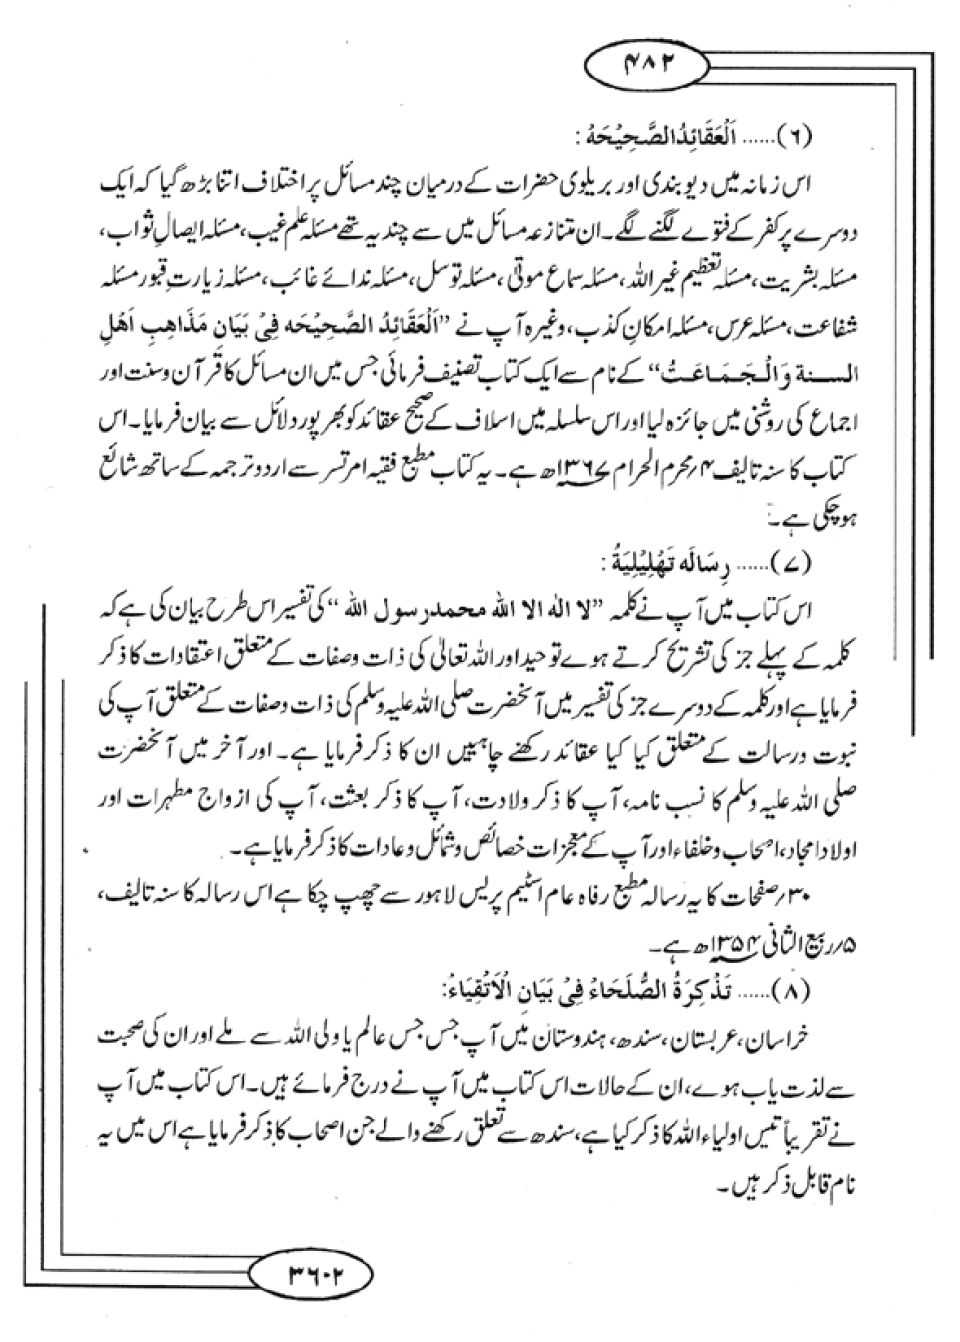 ۴۸۲
(۶)...... اَلْعَقَائِدُ الصَّحِيْحَهُ :
اس زمانہ میں دیوبندی اور بریلوی حضرات کے درمیان چند مسائل پر اختلاف اتنا بڑھ گیا کہ ایک
دوسرے پر کفر کے فتوے لگنے لگے۔ ان متنازعہ مسائل میں سے چند یہ تھے مسئلہ علم غیب، مسئلہ ایصالِ ثواب،
مسئلہ بشریت، مسئلہ تعظیم غیر اللہ، مسئلہ سماع موتیٰ، مسئلہ توسل، مسئلہ ندائے غائب، مسئلہ زیارتِ قبور مسئلہ
شفاعت، مسئلہ عرس، مسئلہ امکانِ کذب، وغیرہ آپ نے ”اَلْعَقَائِدُ الصَّحِيْحَه فِىْ بَيَان مَذَاهِبِ اَهْلِ
السنة وَالْجَمَاعَتُ“ کے نام سے ایک کتاب تصنیف فرمائی جس میں ان مسائل کا قرآن و سنت اور
اجماع کی روشنی میں جائزہ لیا اور اس سلسلہ میں اسلاف کے صحیح عقائد کو بھرپور دلائل سے بیان فرمایا۔ اس
کتاب کا سنہ تالیف ۴؍محرم الحرام ۱۳۶۷ھ ہے۔ یہ کتاب مطبع فقیہ امرتسر سے اردو ترجمہ کے ساتھ شائع
ہوچکی ہے۔
(۷)...... رِسَالَه تَهْلِيْلِيَةُ :
اس کتاب میں آپ نے کلمہ ”لا اله الا الله محمدرسول الله“ کی تفسیر اس طرح بیان کی ہے کہ
کلمہ کے پہلے جز کی تشریح کرتے ہوے توحید اور اللہ تعالیٰ کی ذات وصفات کے متعلق اعتقادات کا ذکر
فرمایا ہے اور کلمہ کے دوسرے جز کی تفسیر میں آنحضرت صلی اللہ علیہ وسلم کی ذات وصفات کے متعلق آپ کی
نبوت ورسالت کے متعلق کیا کیا عقائد رکھنے چاہئیں ان کا ذکر فرمایا ہے۔ اور آخر میں آنحضرت
صلی اللہ علیہ وسلم کا نسب نامہ، آپ کا ذکر ولادت، آپ کا ذکر بعثت، آپ کی ازواج مطہرات اور
اولاد امجاد، اصحاب وخلفاء اور آپ کے معجزات خصائص وشمائل وعادات کا ذکر فرمایا ہے۔
۳۰؍صفحات کا یہ رسالہ مطبع رفاہ عام اسٹیم پریس لاہور سے چھپ چکا ہے اس رسالہ کا سنہ تالیف،
۵؍ربیع الثانی ۱۳۵۴ھ ہے۔
(۸)...... تَذْكِرَةُ الصُّلَحَاءْ فِىْ بَيَانِ الْاَتْقِيَاءُ:
خراسان، عربستان، سندھ، ہندوستان میں آپ جس جس عالم یا ولی اللہ سے ملے اور ان کی صحبت
سے لذت یاب ہوے، ان کے حالات اس کتاب میں آپ نے درج فرمائے ہیں۔ اس کتاب میں آپ
نے تقریباً تیس اولیاء اللہ کا ذکر کیا ہے، سندھ سے تعلق رکھنے والے جن اصحاب کا ذکر فرمایا ہے اس میں یہ
نام قابل ذکر ہیں۔
۳۶۰۲